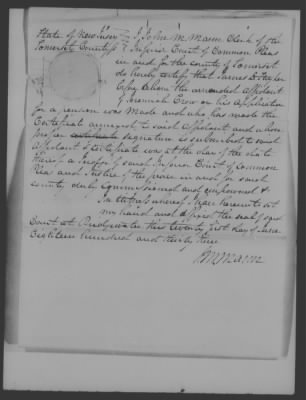 State of New Jersey I John M Mann Clerk of the
Somerset County ss Inferior Court of Common Pleas
in and for the county of Somerset
do hereby certify that James
before whom the annexed Affidavit
of Jeremiah on his Application
for a pension was Made and who has made the
Certificate annexed to said Affidavit and whose
proper signature is subscribed to said
Affidavit & certificate was at the day of the date
thereof a Judge of said Inferior Court of Common
Pleas and Justice of the peace in and for said
county duly commissioned and empowered &
In testimony whereof I have hereunto set
my hand and affixed the seal of said
Court at this twenty first day of June
Eighteen hundred and thirty three
Mann